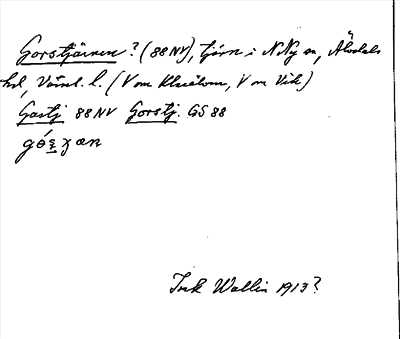 Gorstjärnen? (88 NV), tjärn i N Ny sn, Älvdals
hd, Värml. l. (V om Klarälven, V om Vik)
Gastj 88 NV Gorstj. GS 88
Wallin 1913?